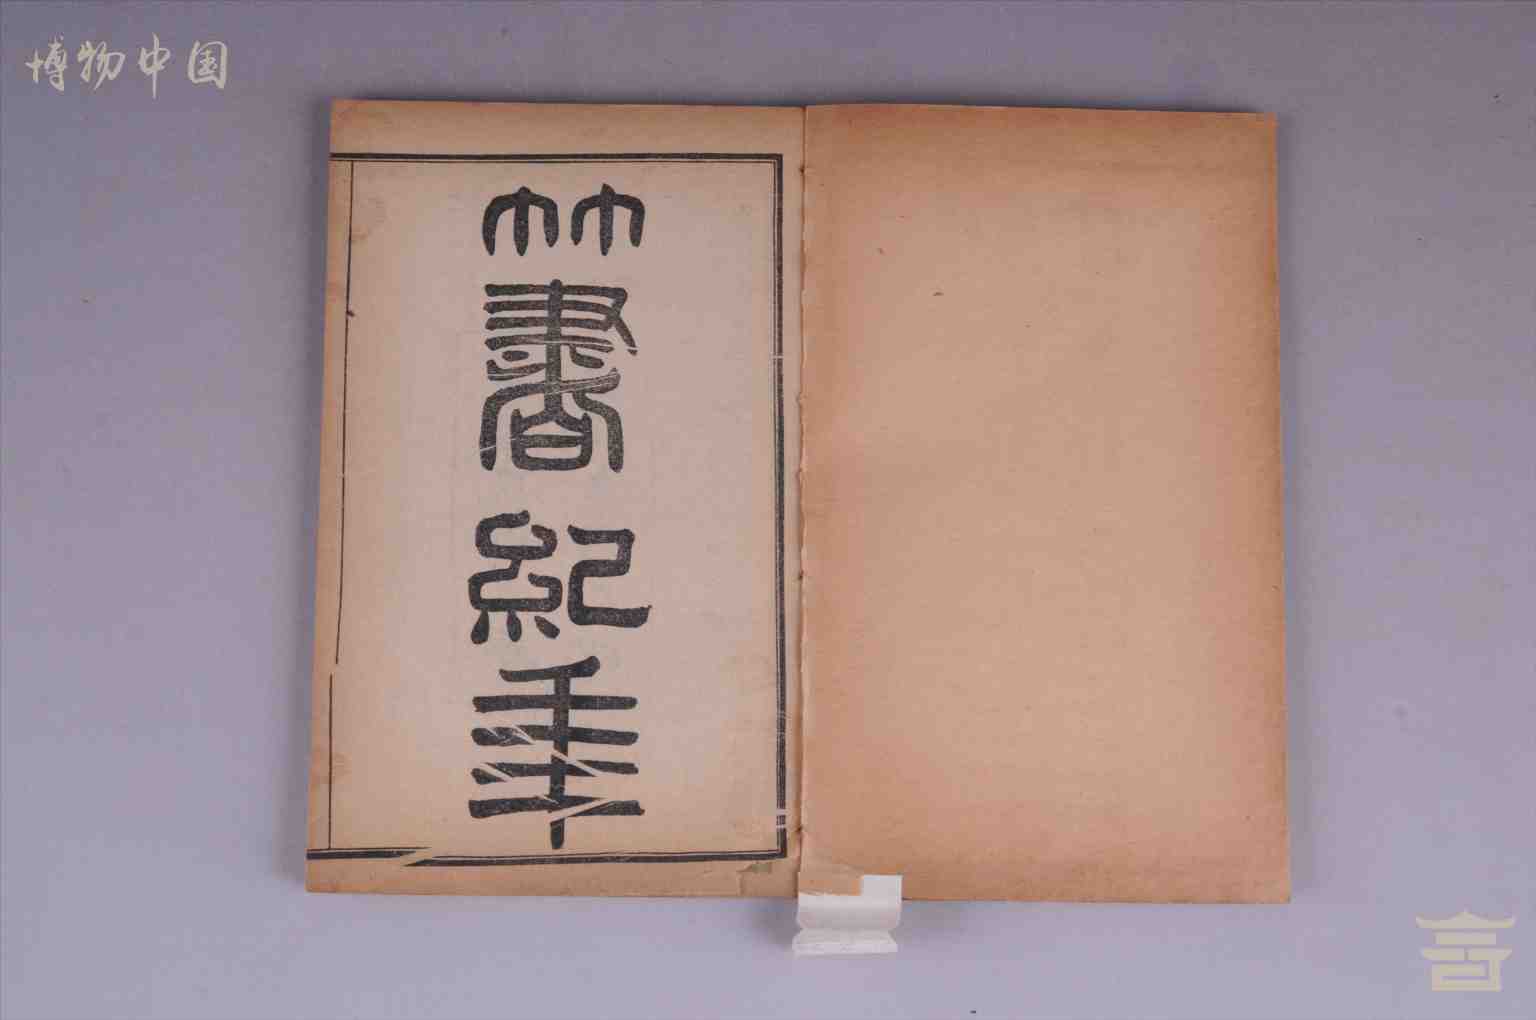 博物中国
竹書紀年